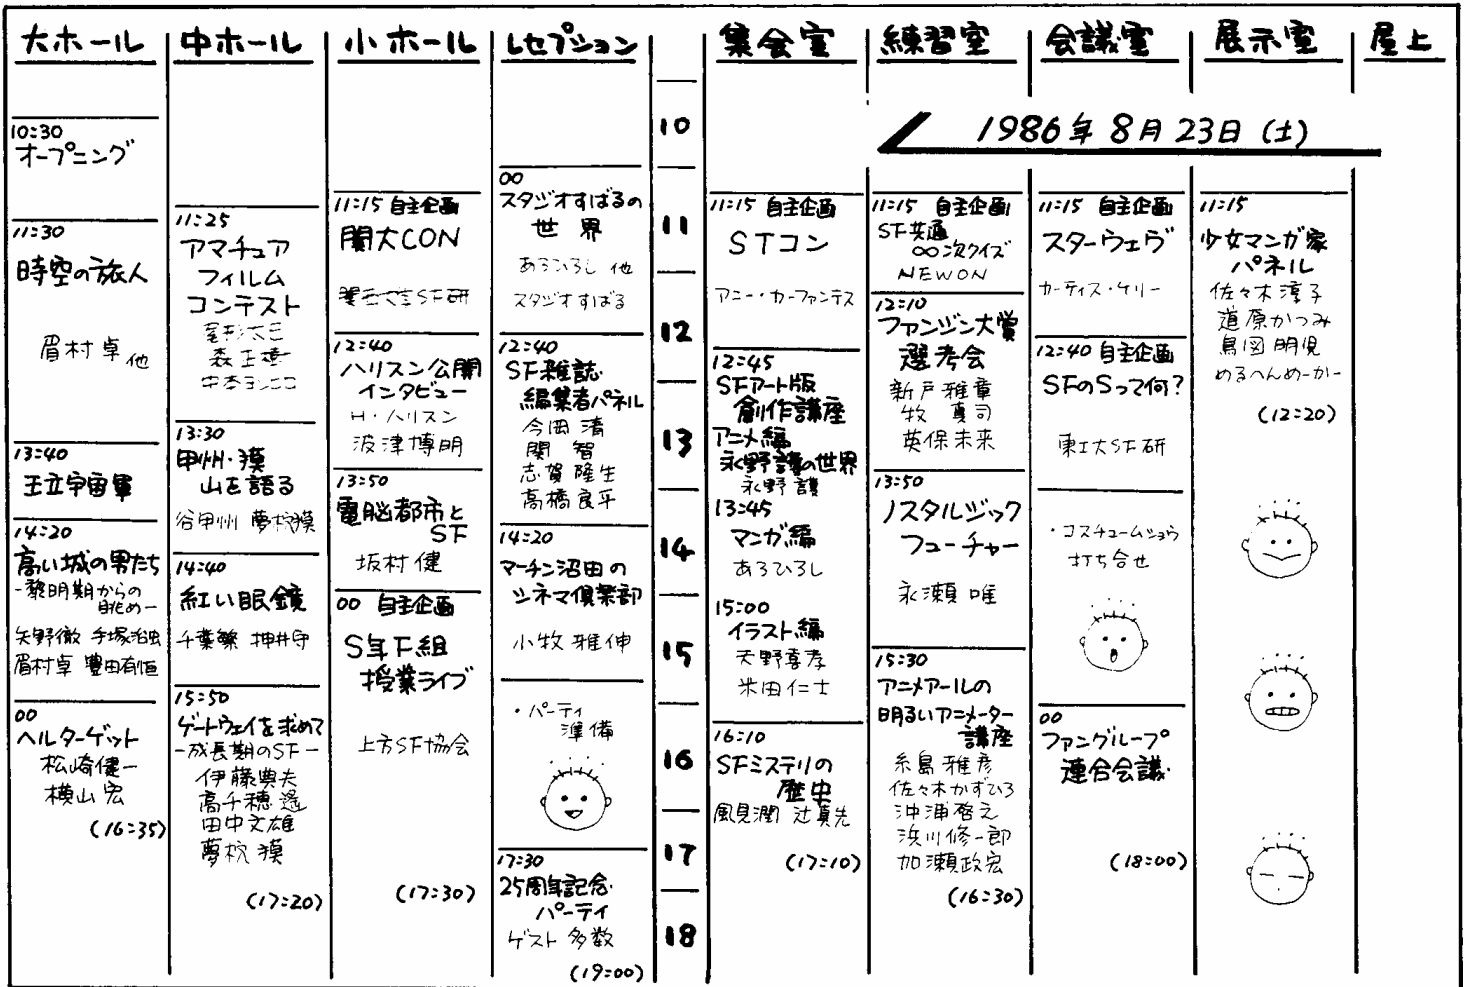 大ホール
10:30
オープニング
11:30
時空の旅人
眉村卓 他
13:40
王立宇宙軍
14:20
高い城の男たち
-黎明期からの
眺め-
矢野徹 手塚治虫
眉村卓 豊田有恒
00
ヘルターゲット
松崎健一
横山宏
(16:35)
中ホール
11:25
アマチュア
フィルム
コンテスト
13:30
甲州・獏
山を語る
谷甲州 夢枕獏
14:40
紅い眼鏡
千葉繁 押井守
15:50
ゲートウェイを求めて
-成長期のSF-
伊藤典夫
高千穂遙
田中文雄
夢枕獏
(17:20)
小ホール
11:15 自主企画
関大CON
関西大学SF研
12:40
ハリスン公開
インタビュー
H・ハリスン
波津博明
13:50
電脳都市と
SF
坂村健
00 自主企画
S年F組
授業ライブ
上方SF協会
(17:30)
レセプション
00
スタジオすばるの
世界
あろひろし 他
スタジオすばる
12:40
SF雑誌
編集者パネル
今岡清
関智
志賀隆生
高橋良平
14:20
マーチン沼田の
シネマ倶楽部
小牧雅伸
・パーティ
準備
17:30
25周年記念
パーティ
ゲスト多数
(19:00)
10
11
12
13
14
15
16
17
18
集会室
11:15 自主企画
STコン
アニー・カーファンテス
12:45
SFアート版
創作講座
アニメ編
永野護の世界
永野護
13:45
マンガ編
あろひろし
15:00
イラスト編
天野喜孝
米田仁士
16:10
SFミステリの
歴史
風見潤 辻真先
(17:10)
練習室
11:15 自主企画
SF共通
∞次クイズ
NEWON
12:10
ファンジン大賞
選考会
新戸雅章
牧真司
英保未来
13:50
ノスタルジック
フューチャー
永瀬唯
15:30
アニメアールの
明るいアニメーター
講座
糸島雅彦
佐々木かずひろ
沖浦啓之
浜川修一郎
加瀬政宏
(16:30)
会議室
11:15 自主企画
スターウェヴ
カーティス・ケリー
12:40 自主企画
SFのSって何?
東工大SF研
・コスチュームショウ
打ち合せ
00
ファングループ
連合会議
(18:00)
展示室
11:15
少女マンガ家
パネル
佐々木淳子
道原かつみ
鳥図明児
めるへんめーかー
(12:20)
屋上
1986年8月23日(土)